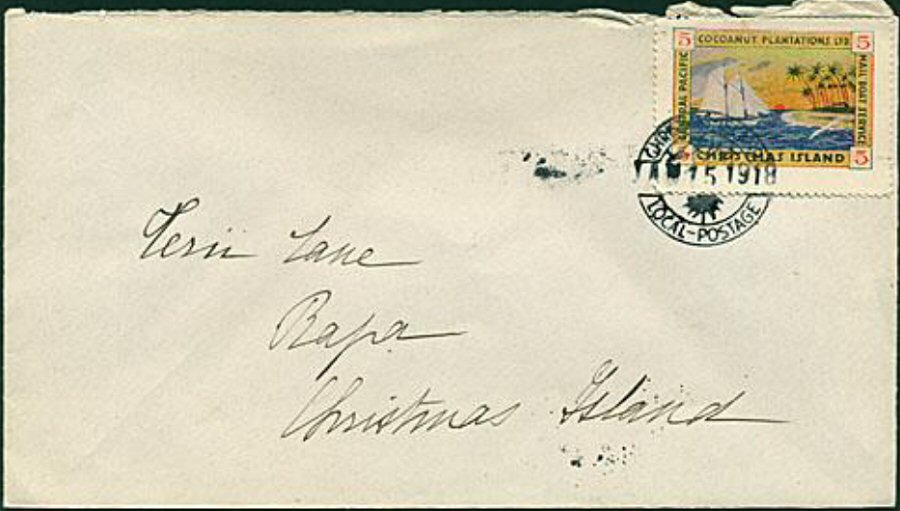 5 COCOANUT PLANTATIONS LTD 5
CENTRAL PACIFIC
MAIL BOAT SERVICE
CHRISTMAS ISLAND 5
JAN 15 1918
LOCAL-POSTAGE
Terii Lane
Rapa
Christmas Island